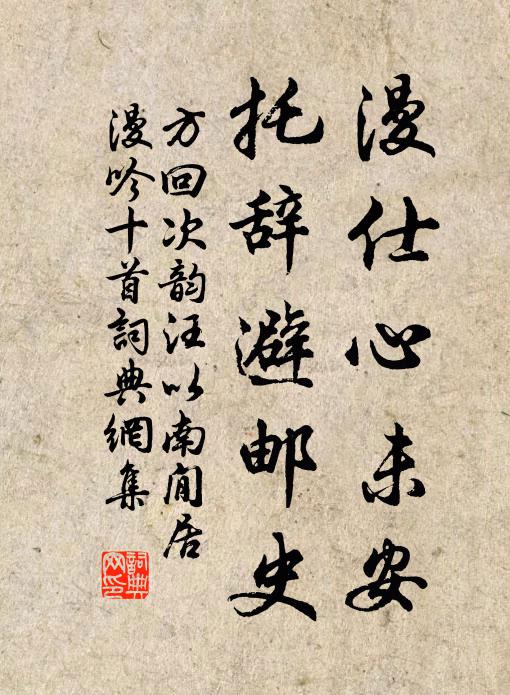 漫仕心未安
托辞避邮史
方回次韵汪以南闲居
漫吟十首詞典網集
詞典网印